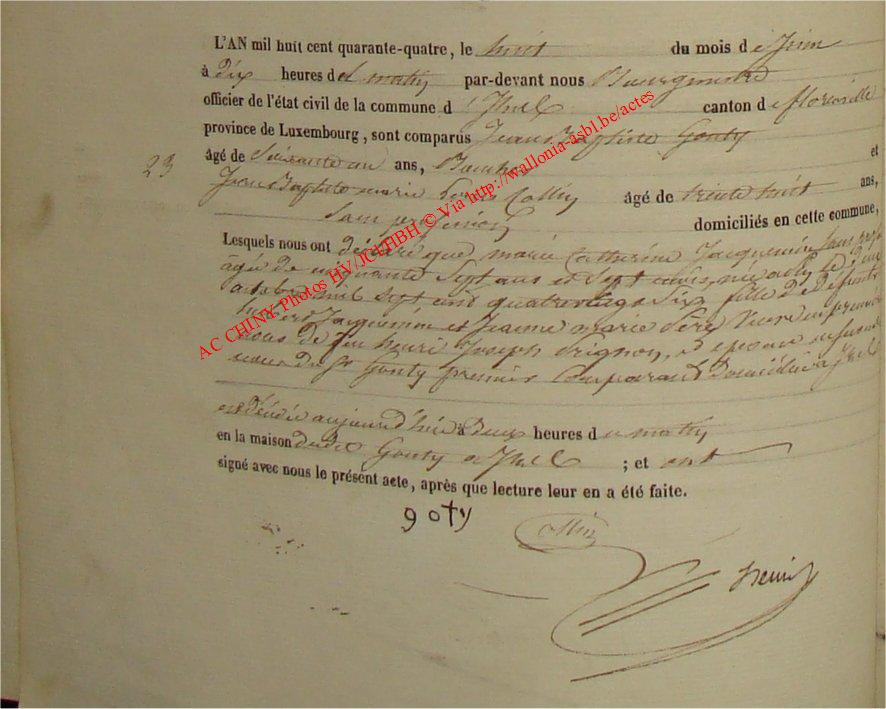 L'AN mil huit cent quarante-quatre, le huit du mois de Juin
à dix heures du matin par-devant nous Bourgmestre
officier de l'état civil de la commune d'Izel canton de florenville
province de Luxembourg, sont comparus Jean Baptiste Gouty
23 âgé de Soixante un ans, et
Jean Baptiste marie Collin âgé de trente huit ans,
Sans profession domiciliés en cette commune,
Lesquels nous ont déclaré que marie Catherine Jacquemin Sans
âgée de cinquante Sept ans et Sept mois, née à le
octobre mil Sept cent quatre vingt Six fille de défunts
Jacquemin et Jeanne marie Veuve en premier
de feu henri Joseph Frignon, et épouse en
du Sr Gouty premier Comparant Domicilié à Izel
est décédée aujourd'hui à Deux heures du matin
en la maison dudit Gouty à Izel ; et ont
signé avec nous le présent acte, après que lecture leur en a été faite.
goty
Collin
AC CHINY Photos HV/JCC/HBH © Via http://wallonia-asbl.be/actes